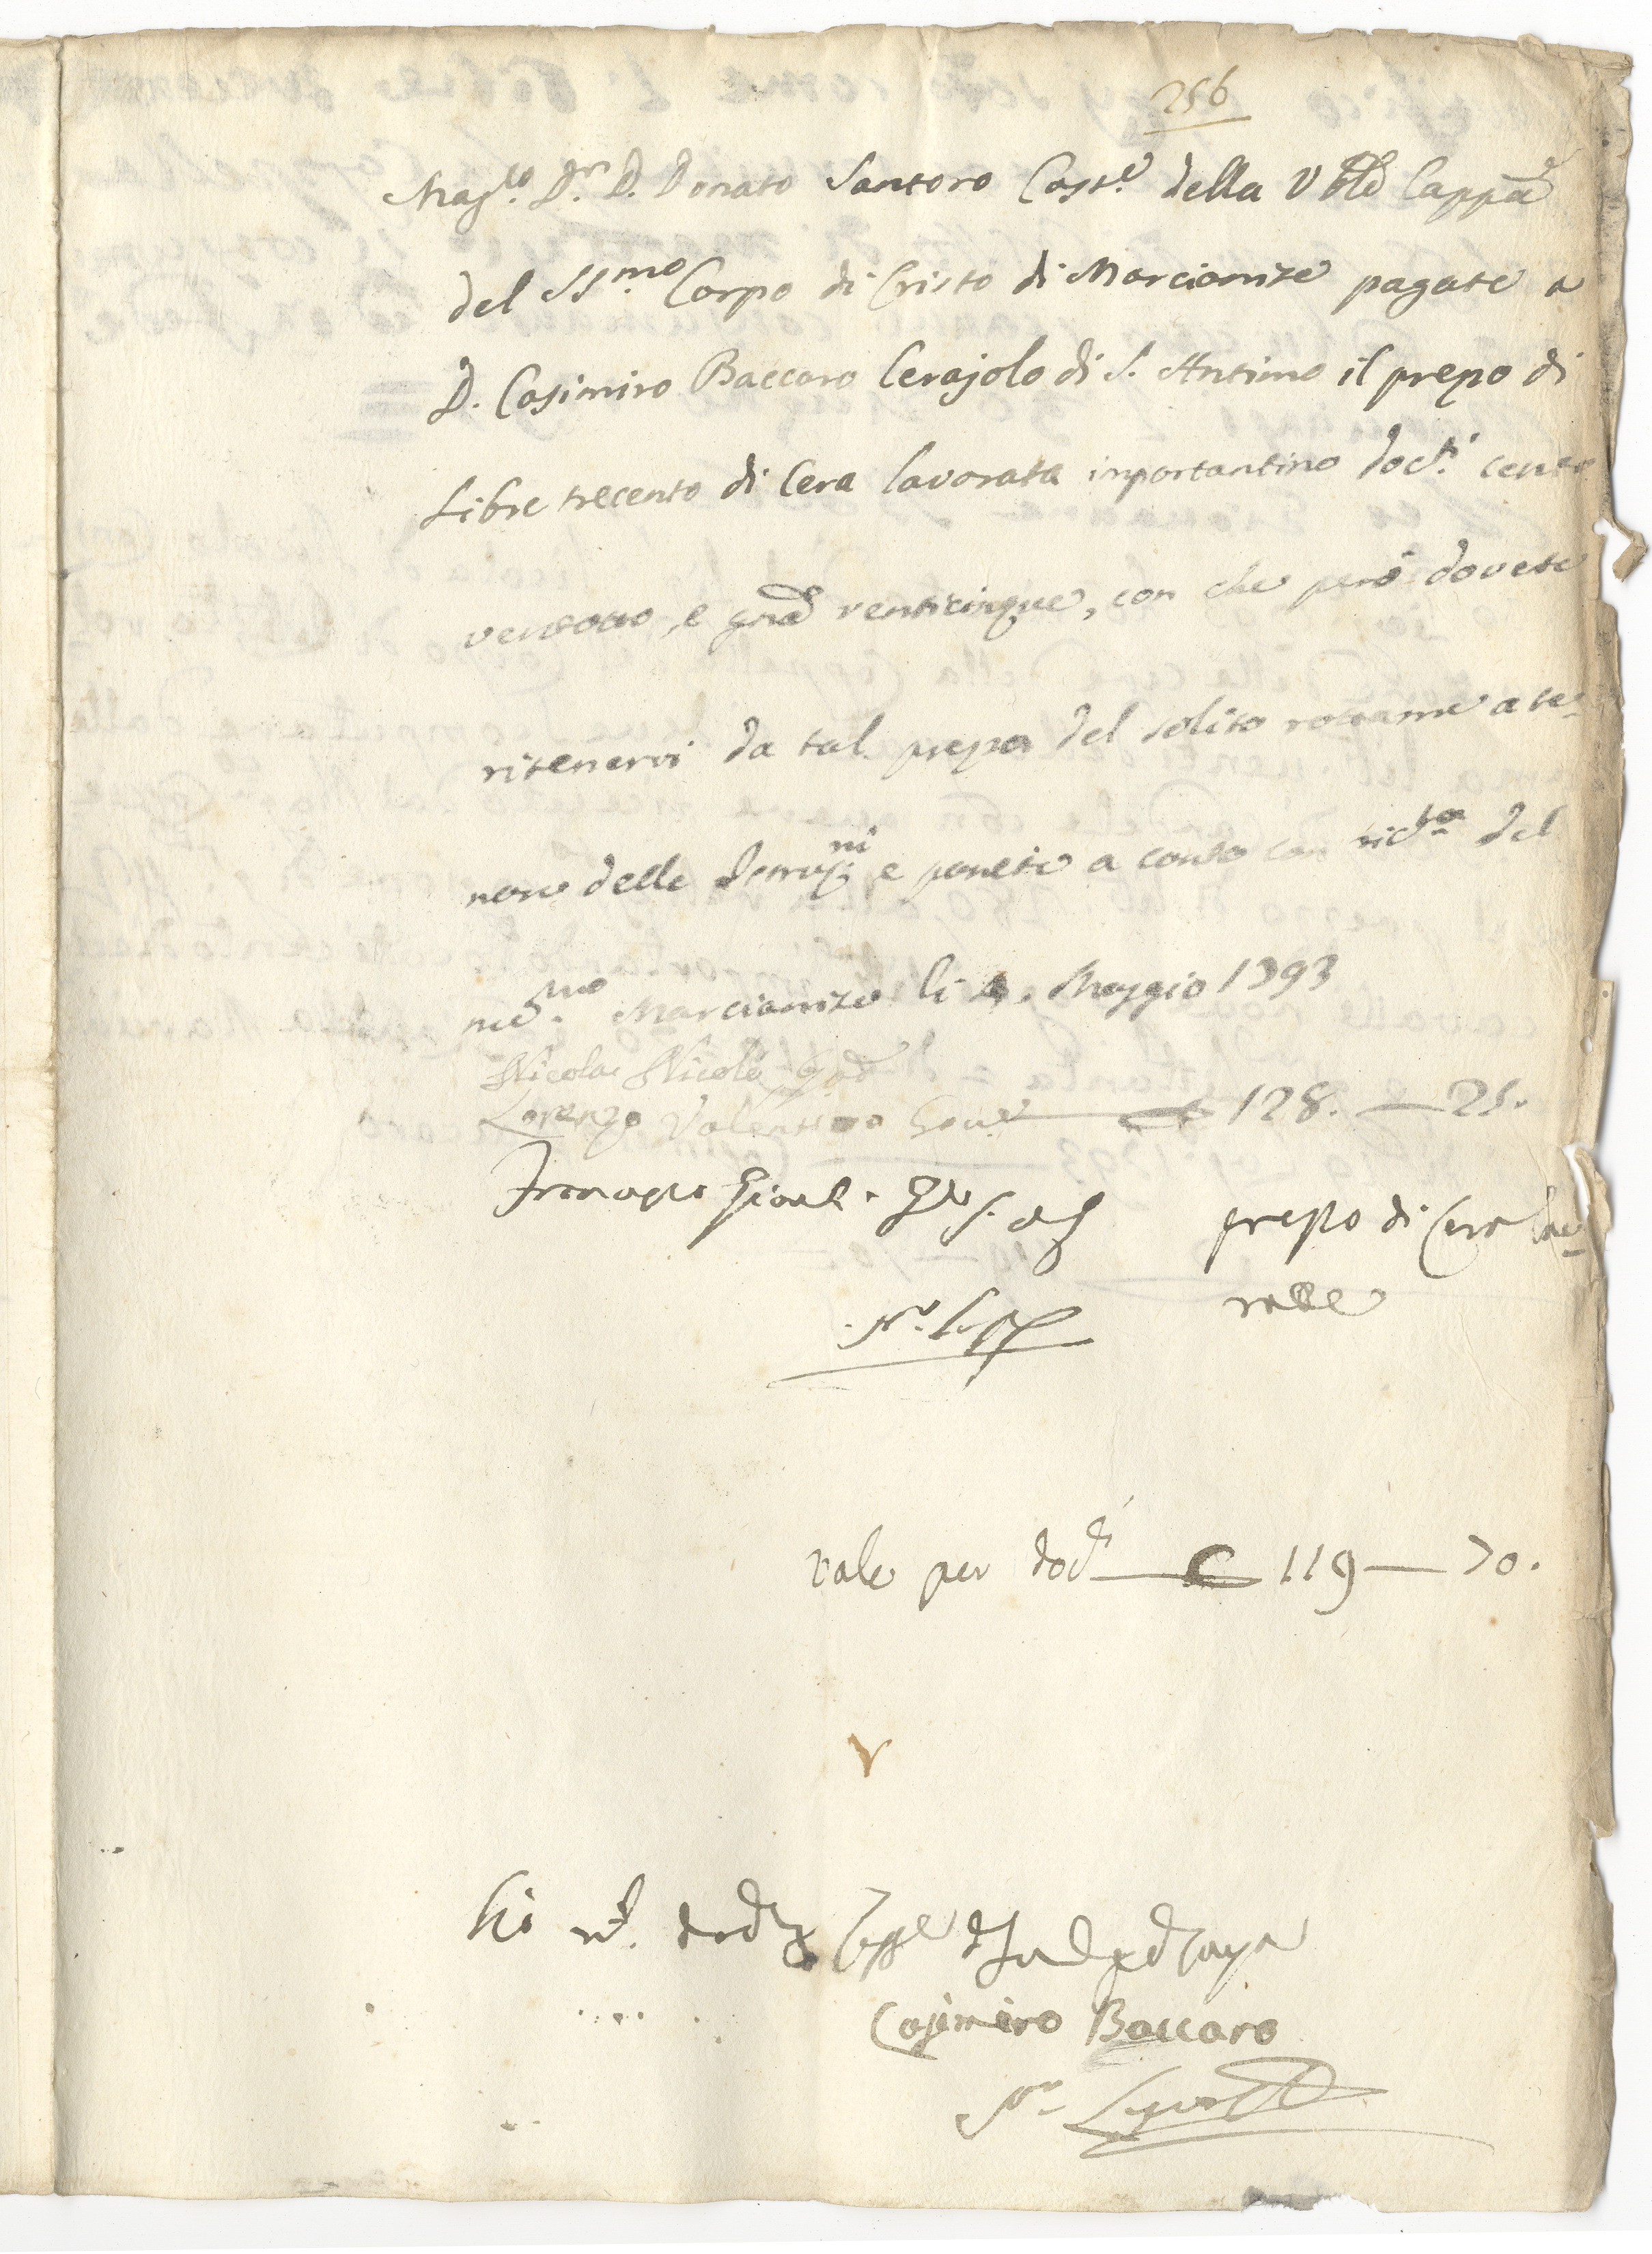 256
Mag.co D.r D. Donato Santoro Cass.e della V ble Cappa
del SS.mo Corpo di Cristo di Marcianise pagate a
D. Casimiro Baccaro Cerajolo di S. Antimo il prezzo di
Libre trecento di Cera lavorata inportantino docti cento
ventotto, e gna venticinque, con che però dovete
ritenervi da tal prezzo del solito rottame a te=
nore delle Istruzni e ponete a conto con ricta del
medmo. Marcianise li 4. Maggio 1793
Nicola Nicolò
Lorenzo Valentino Gove 128. — 25.
prezzo di Cera lav=
Vale per docti 119 — 70.
Casimiro Baccaro